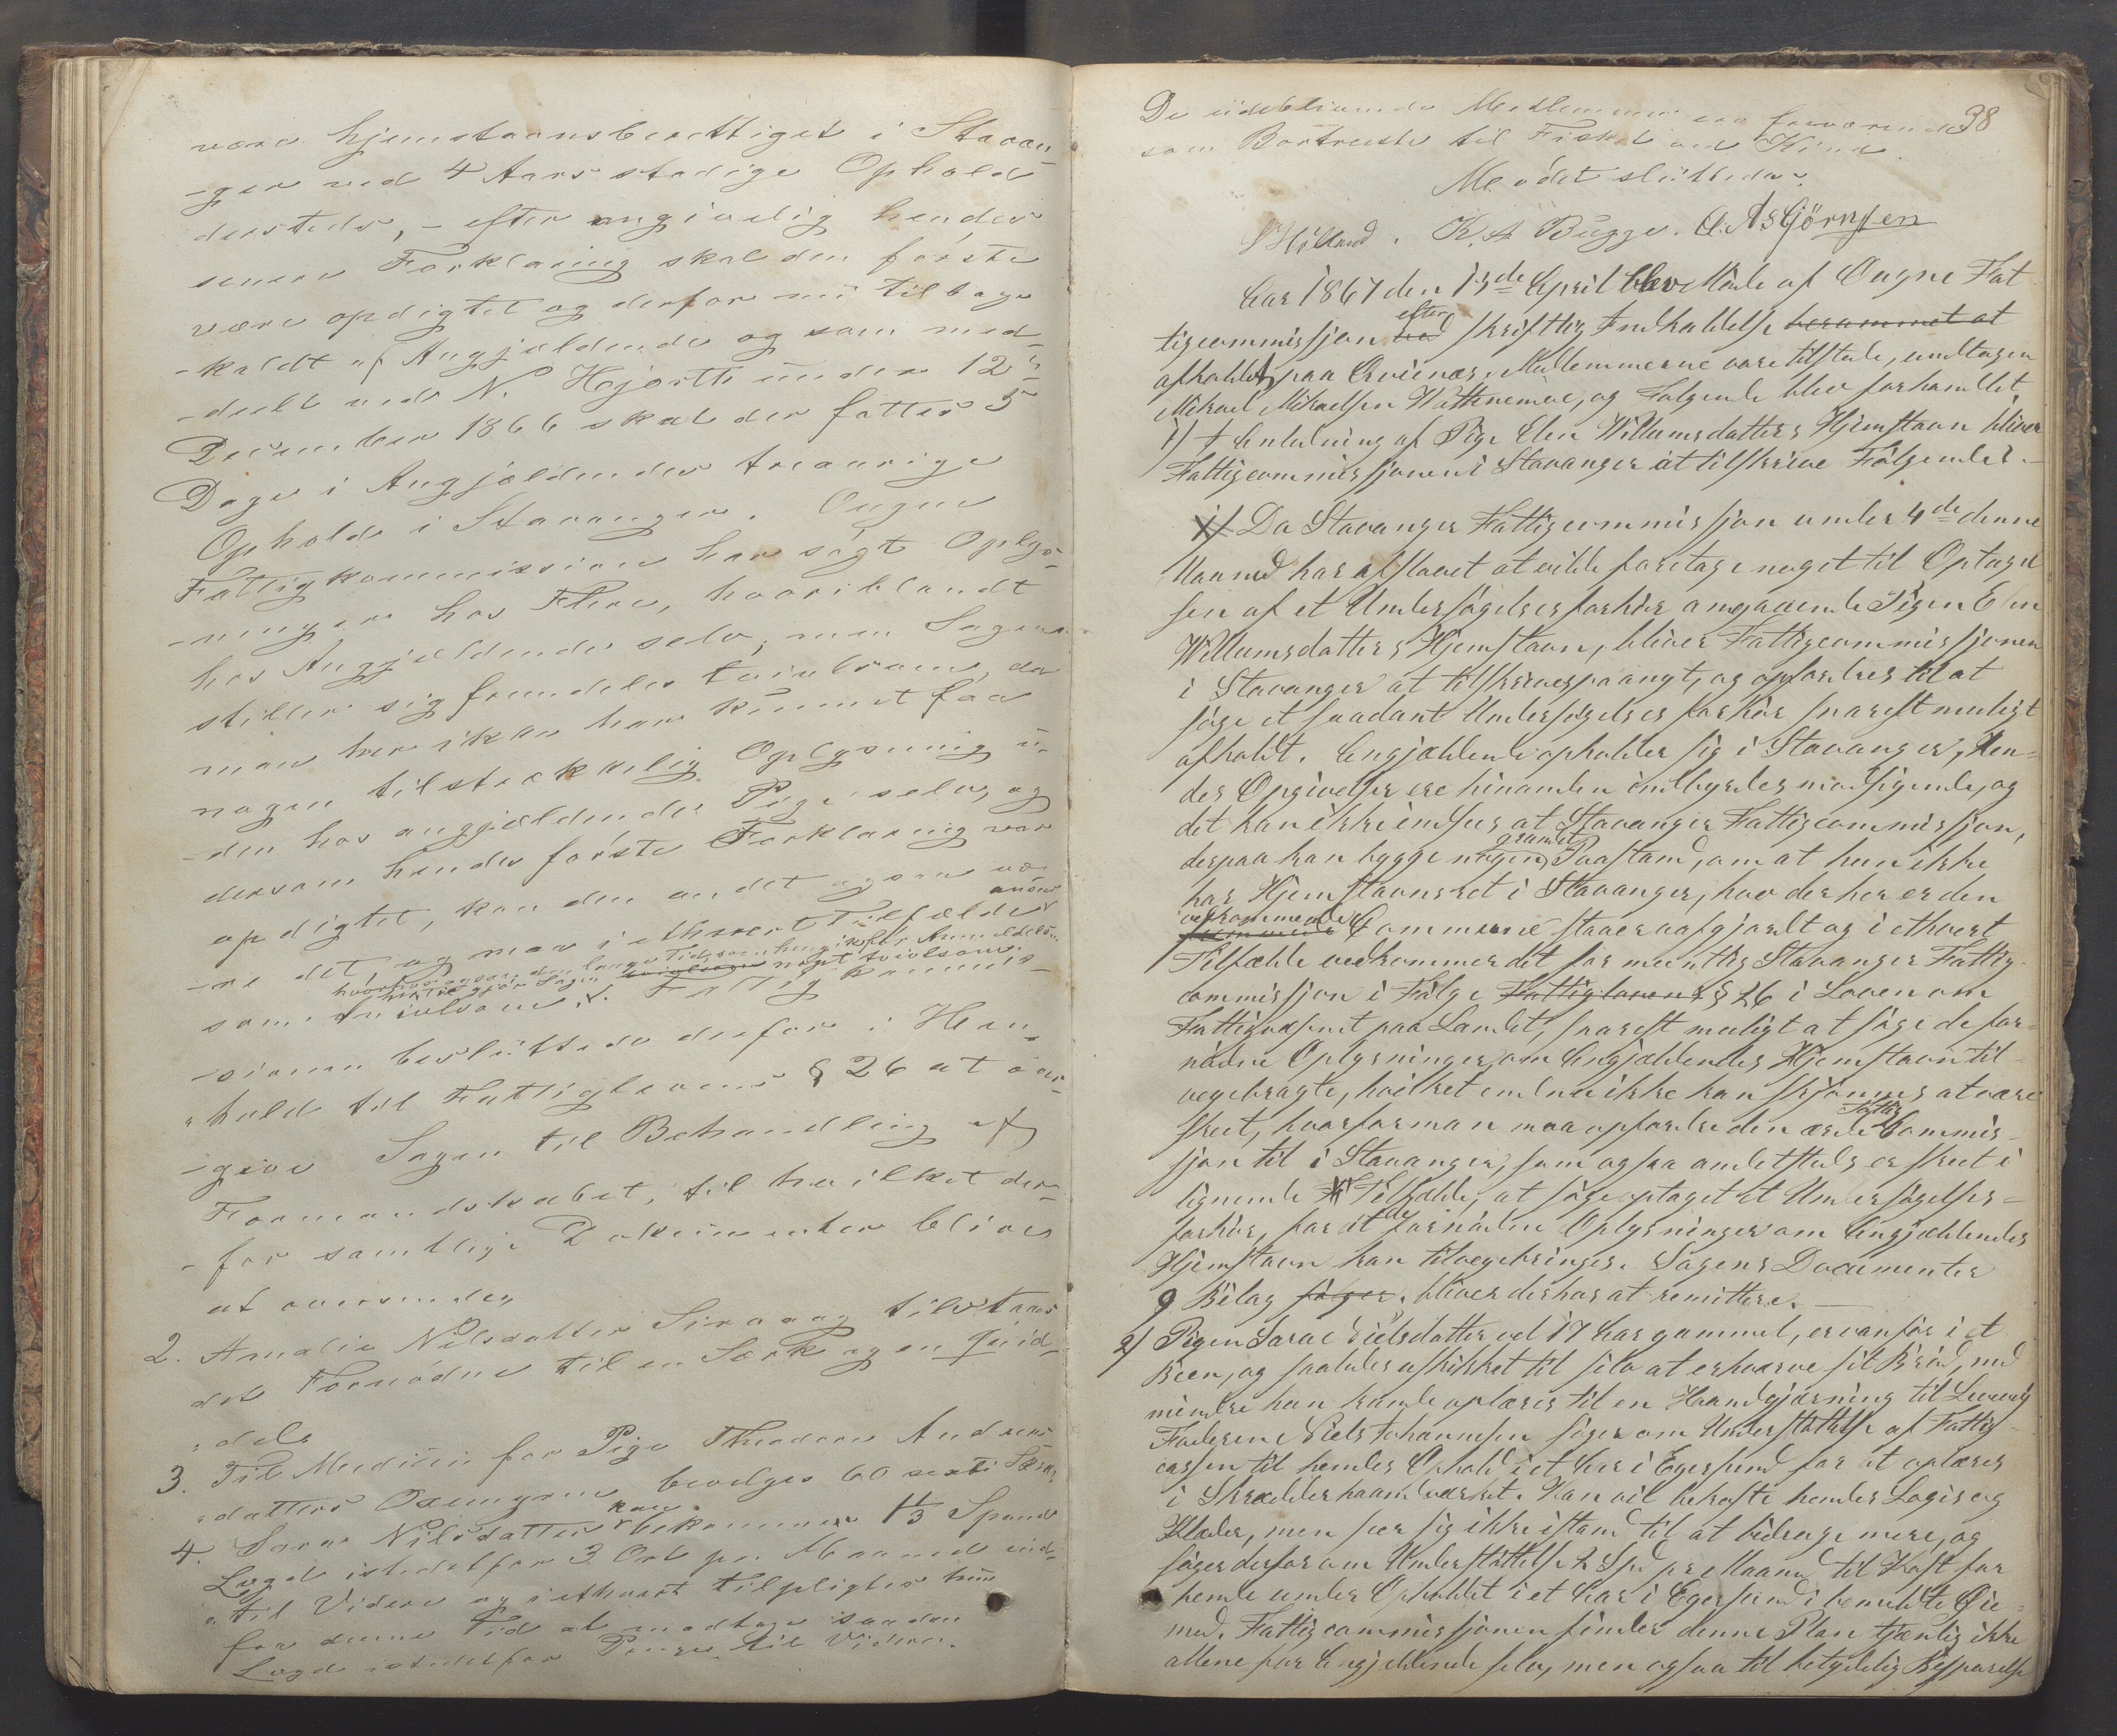 være hjemstavnsberettiget i Stavan-
-ger ved 4 Aars stadige Ophold
dersteds, - efter angivelig hendes
senere Forklaring skal den første
være opdigtet og derfor nu tilbage-
-kaldt af Angjældende og som med-
-deelt ved N. Hjorth under 12te
December 1866 skal der fattes 5
Dage i Angjældendes treaarige
Ophold i Stavanger. Ougne
Fattigkommission har søgt Oplys-
-ninger hos Flere, hvoriblandt
hos Angjældende selv, men Sagen
stiller sig fremdeles tvivlsom, da
man her ikke har kunnet faa
nogen tilstrækkelig Oplysning u-
-den hos angjældende Pige selv, og
dersom hendes første Forklaring var
opdigtet, kan den andet ogsaa væ-
-re det, og maa i ethvert Tilfælde ansees
hvorhos ogsaa den lange Tid, som hengik før Anmeldelsen
herom gjør Sagen tvivlsom noget tvivlsom.
som tvivlsom. Fattigkommis-
-sionen besluttede derfor i Hen-
-hold til Fattiglovens § 26 at over-
-give Sagen til Behandling af
Formandskabet, til hvilket der-
-for samtlige Dokumenter blive
at oversende.
2. Amalie Nilsdatter Sirevaag tilstaaes
det Fornødne til en Særk og en Huid-
-del.
3. Til Medicin for Pige Theodora Andreas-
-datters Oxemyren bevilges 60 sexti Skil.
4. Sara Nilsdatter kan bekomme 1 1/3 Spand
Lægd istedetfor 3 Ort pr. Maaned ind-
-til Videre og i ethvert Tilpligtes hun
for denne Tid at modtage saadan
Lægd istedetfor Penge til Videre.
38
De udeblivende Medlemmer ere fraværende
som Bortreiste til Fisket ved Kinn.
Mødet sluttedes.
K. A. Bugge. O. Asbjörnsen
Aar 1867 den 13de April blev Møde af Ougne Fat
tigcommissjon efter ved skriftlig Indkaldelse berammet at
afholdt paa Qvienæs. Medlemmerne vare tilstæde, undtagen
Mikael Mikaelsen Wattnemoe, og Følgende blev forhandlet,
1) I Anledning af Pige Elen Willumsdatters Hjemstavn bliver
Fattigcommissjonen i Stavanger at tilskrive Følgende: -
1/ Da Stavanger Fattigcommissjon under 4de denne
Maaned har afslaaet at ville foretage noget til Optagel
sen af et Undersøgelsesforhør angaaende Pigen Elen
Willumsdatters Hjemstavn, bliver Fattigcommissjonen
i Stavanger at tilskrives paanyt, og opfordres til at
søge et saadant Undersøgelsesforhør snarest muligt
afholdt. Angjældende opholder sig i Stavanger, hen-
des Opgivelser ere hinanden indbyrdes modsigende, og
det kan ikke indsees at Stavanger Fattigcommissjon,
derpaa kan bygge nogen grundet Paastand, om at hun ikke
har Hjemstavnsret i Stavanger, hvo der her er den
vedkommende Commune staaer uafgjordt og i ethvert
Tilfælde vedkommer det formeentlig Stavanger Fattig-
commissjon i Følge Fattigloven § 26 i Loven om
Fattigvæsenet paa Landet, snarest muligt at søge de for-
nødne Oplysninger om Angjældendes Hjemstavn til-
vegebragte, hvilket endnu ikke kan skjønnes at være
skeet, hvorfor man maa opfordre den ærede Fattig Commis-
sjon til i Stavanger, som ogsaa andetsteds er skeet i
lignende Tilfælde, at søge optaget et Undersøgelses-
forhør, for at de fornødne Oplysninger om Angjældendes
Hjemstavn kan tilvegebringes. Sagens Documenter
9 Bilag følger. bliver derhos at remittere. —
2) Pigen Sara Nielsdatter ved 17 Aar gammel, er vanfør i et
Been, og saaledes uskikket til selv at erhverve sit Brød, med
mindre hun kunde oplæres til en Haandgjærning til Levevei
Faderen Niels Johannesen søger om Understøttelse af Fattig-
cassen til hendes Ophold i et Aar i Egersund for at oplæres
i Skrædderhaandværket. Han vil bekoste hendes Logis og
Klæder, men seer sig ikke istand til at bidrage mere, og
søger derfor om Understøttelse 2 Spd pr Maaned til Kost for
hende under Opholdet i et Aar i Egersund i bemeldte Øie-
med. Fattigcommissjonen finder denne Plan tjenlig ikke
allene for Angjældende selv, men ogsaa til betydelig Besparelse